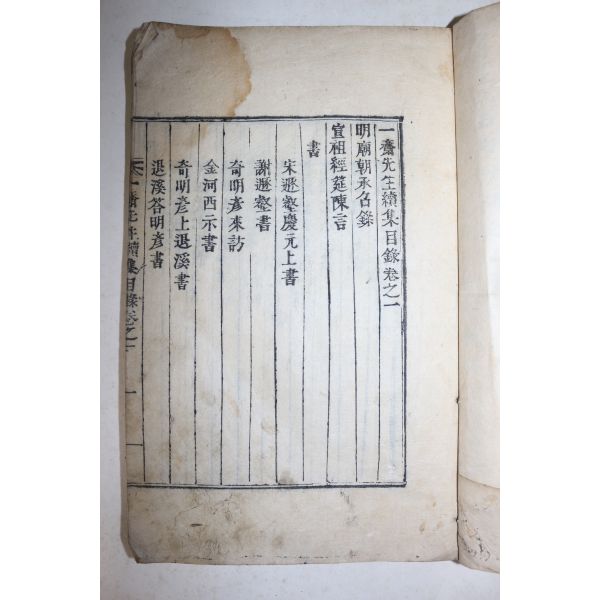 一齋先生續集目錄卷之一
明廟朝承召錄
宣祖經筵陳言
書
宋遯壑慶元上書
謝遯壑書
奇明彥來訪
金河西示書
奇明彥上退溪書
退溪答明彥書
一齋先生續集目錄卷之一
一